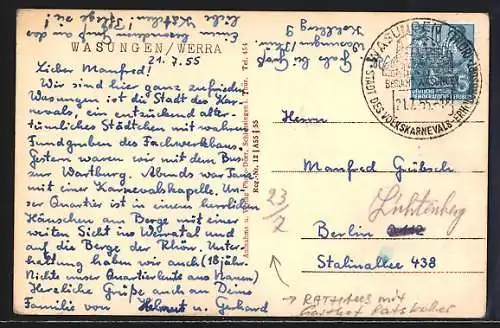 WASUNGEN/WERRA
21.7.55
Lieber Manfred!
Wir sind hier ganz zufrieden
Wasungen ist die Stadt des Kar-
nevals, ein entzückend alter-
tümliches Städtchen mit wahren
Fundgruben des Fachwerkbaus.
Gestern waren wir mit dem Bus
zur Wartburg. Abends war Tanz
mit einer Karnevalskapelle. Un-
ser Quartier ist in einem herrlichen
Häuschen am Berge mit einer
weiten Sicht ins Werratal und
auf die Berge der Rhön. Unter-
haltung haben wir auch (18 jähr.
Nichte unser Quartierleute aus Nauen)
Herzliche Grüße auch an Deine
Familie von Helmut u. Gerhard
Einen besonderen Gruß an das
liebe Kätchen!
Wasungen/Werra
Aufnahme u. Verlag Photo-Dörr, Schleusingen i. Thür. Tel. 454
Reg.-Nr. 12 | A55 | 55
WASUNGEN
STADT DES VOLKSKARNEVALS
21.7.55
5
Herrn
Manfred Gübsch
Lichtenberg
Berlin
Stalinallee 438
23/7
→ RATHAUS mit
Gasthof Ratskeller